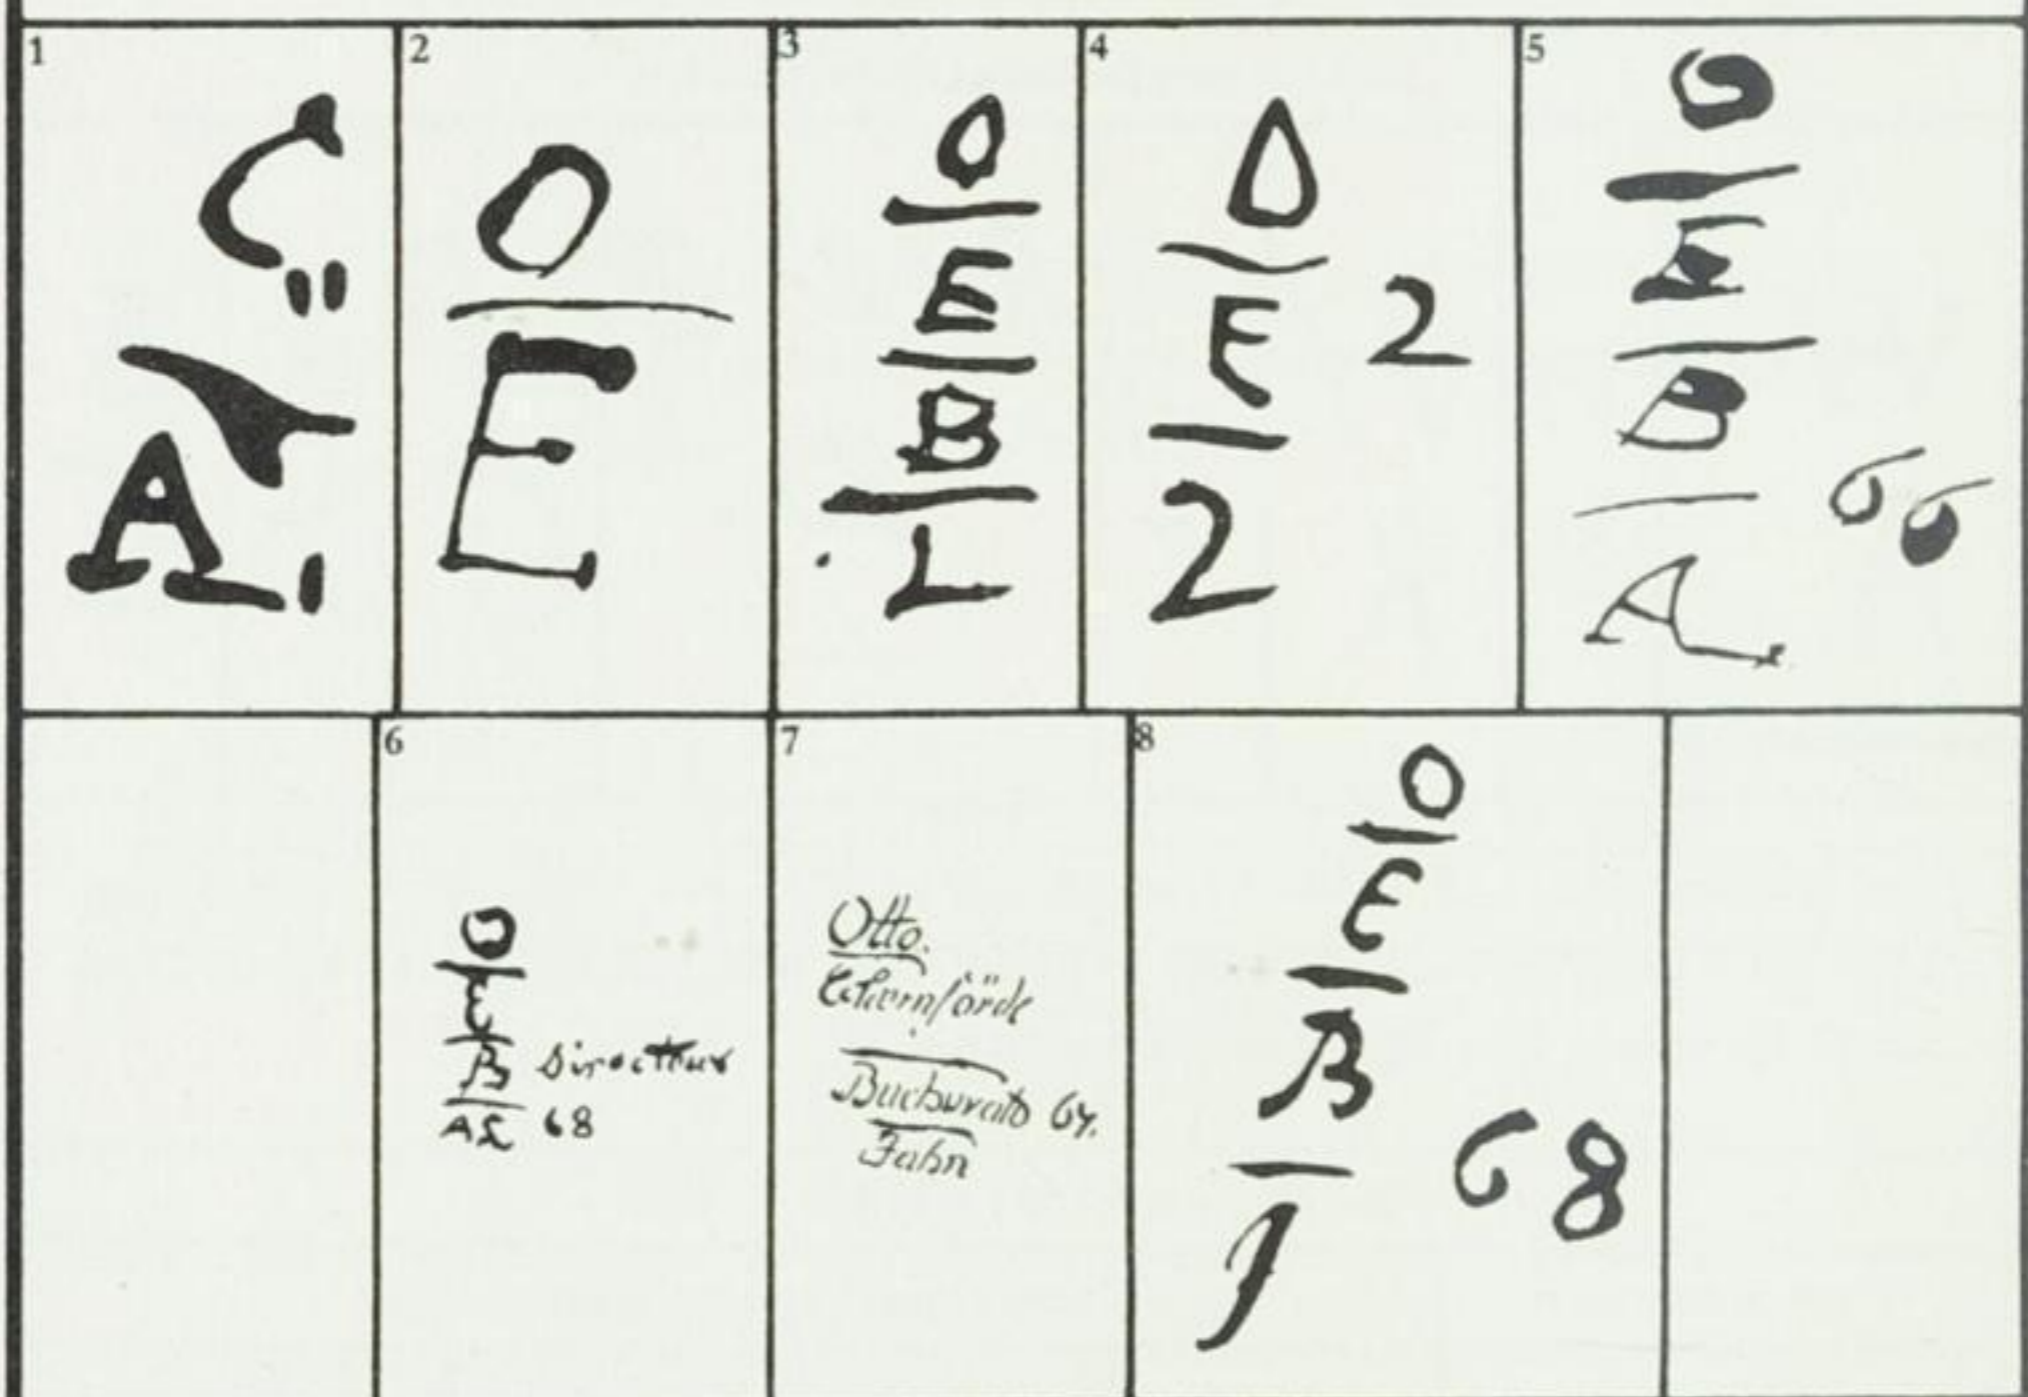 1
C "
A L 1
2
O
E
3
O
E
B
L
4
O
E 2
2
5
O
E
B
A 66
6
O
E
B Directeur
AL 68
7
Otto.
Eckernförde
Buchwald 64.
Jahn
8
O
E
B
J 68